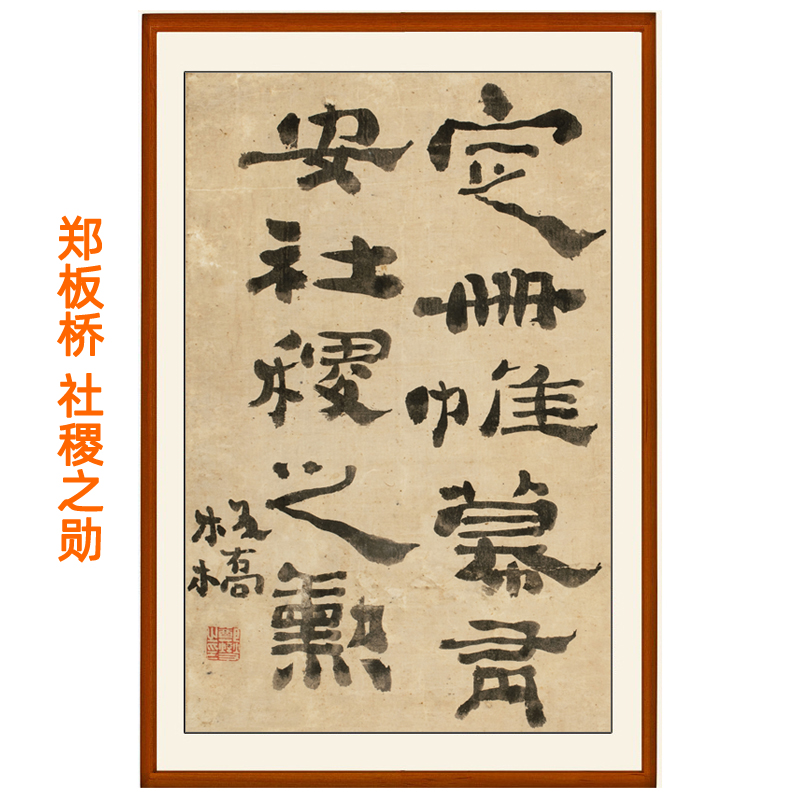 郑板桥 社稷之勋
定冊帷幕有
安社稷之勳
板橋